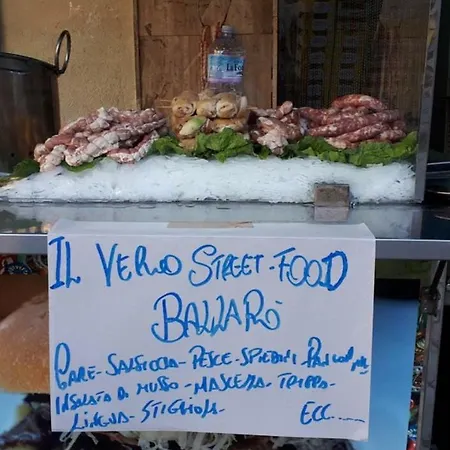 IL VERO STREET-FOOD
BALLARÒ
CARE-SALSICCIA-PESCE-SPIEDINI-PANI
INSALATA DI MUSSO-MASCELLA-TRIPPA-
LINGUA-STIGGIOLA- ECC.....